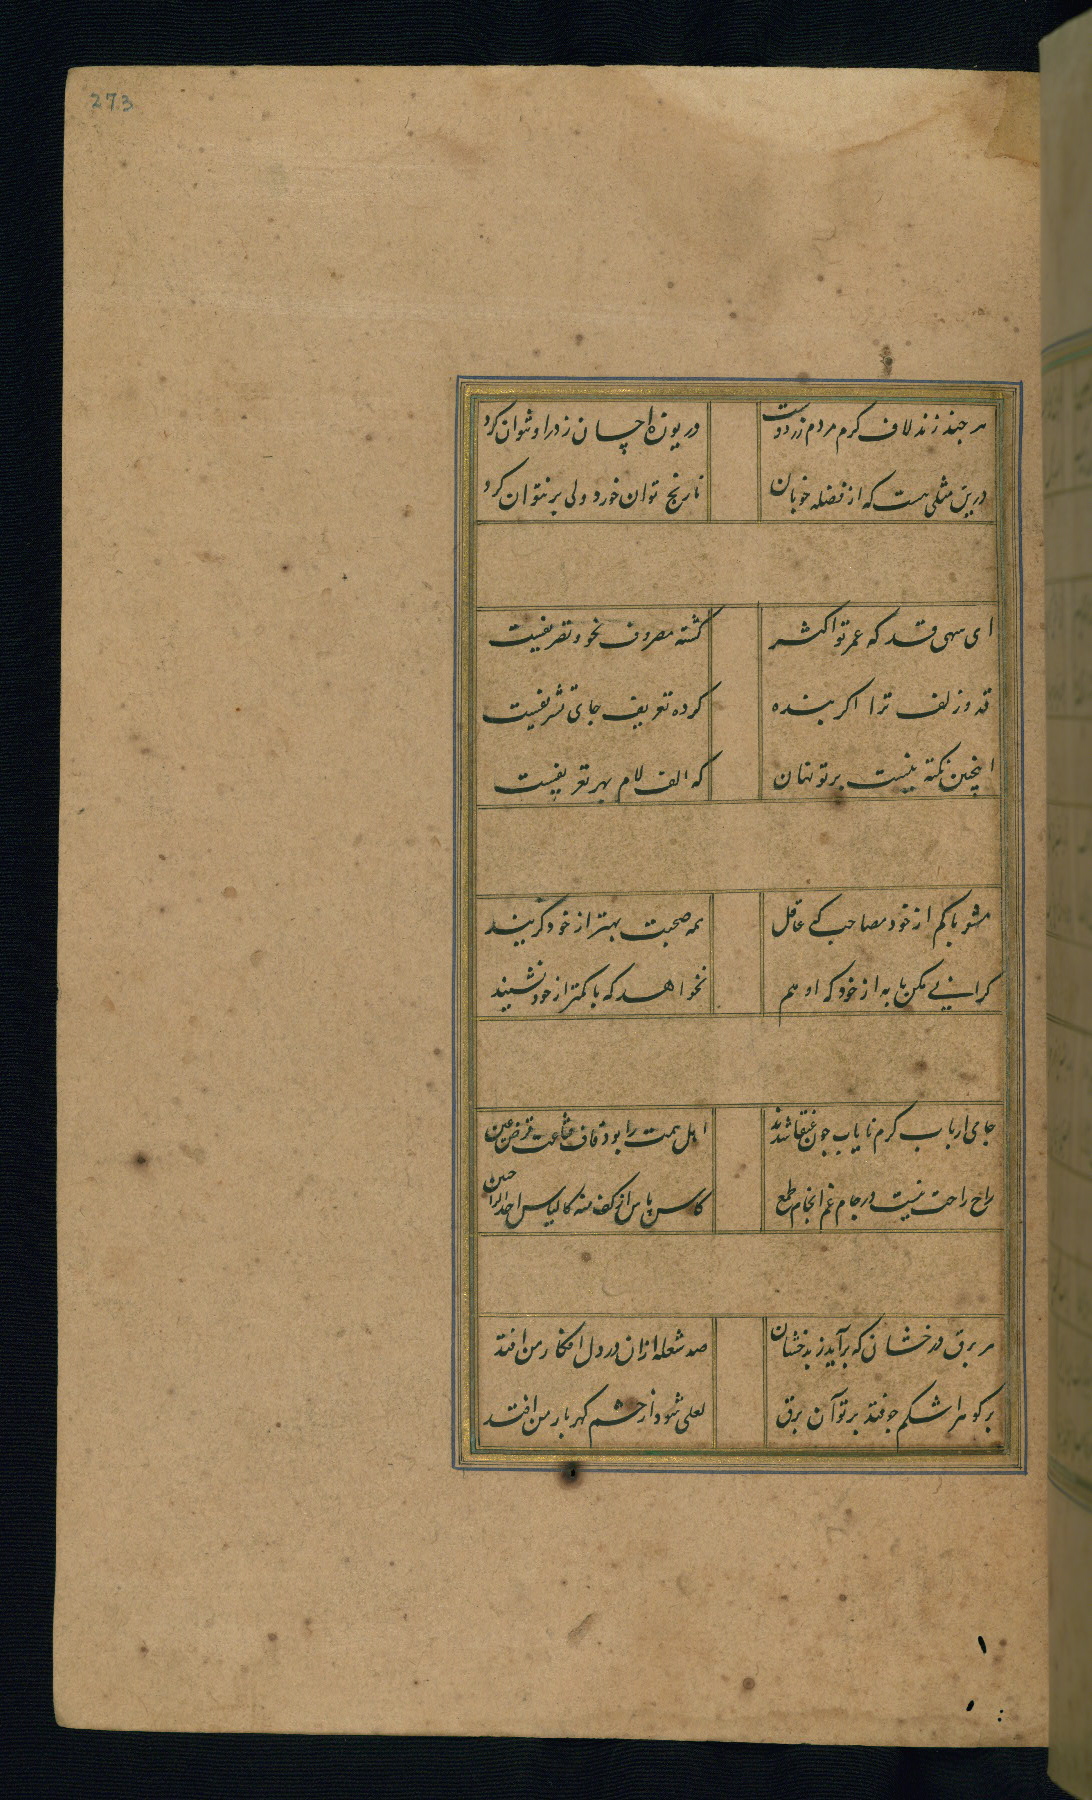 273
هر چند زند لاف کرم مردم زردوست
دریوزه احسان ز در او نتوان کرد
دیرین مثلی هست که از فضله خوبان
نارنج توان خورد ولی بر نتوان کرد
ای سهی قد که عمر تو اکثر
گشته مصروف نحو و تصریفست
قد و زلف ترا اگر بنده
کرده تعریف جای تشریفست
اینچنین نکته نیست بر تو نهان
که الف لام بهر تعریفست
مشو با کم از خود مصاحب که عاقل
همه صحبت بهتر از خود گزیند
گرانی مکن با به از خود که او هم
نخواهد که با کمتر از خود نشیند
جای ارباب کرم نایاب چون عنقا شدند
اهل همت را بود قاف قناعت قرض عین
راح راحت نیست در جام غم انجام طمع
کاس یاس از کف منه کالیاس احدی الراحتین
هر برق درخشان که برآید ز بدخشان
صد شعله ازان در دل افکار من افتد
بر کوه سرشکم چو فتد پرتو آن برق
لعلی شود از چشم گهربار من افتد